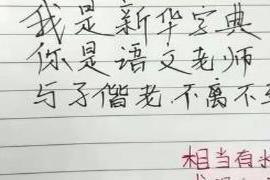 我是新华字典
你是语文老师
与子偕老 不离不
相当有